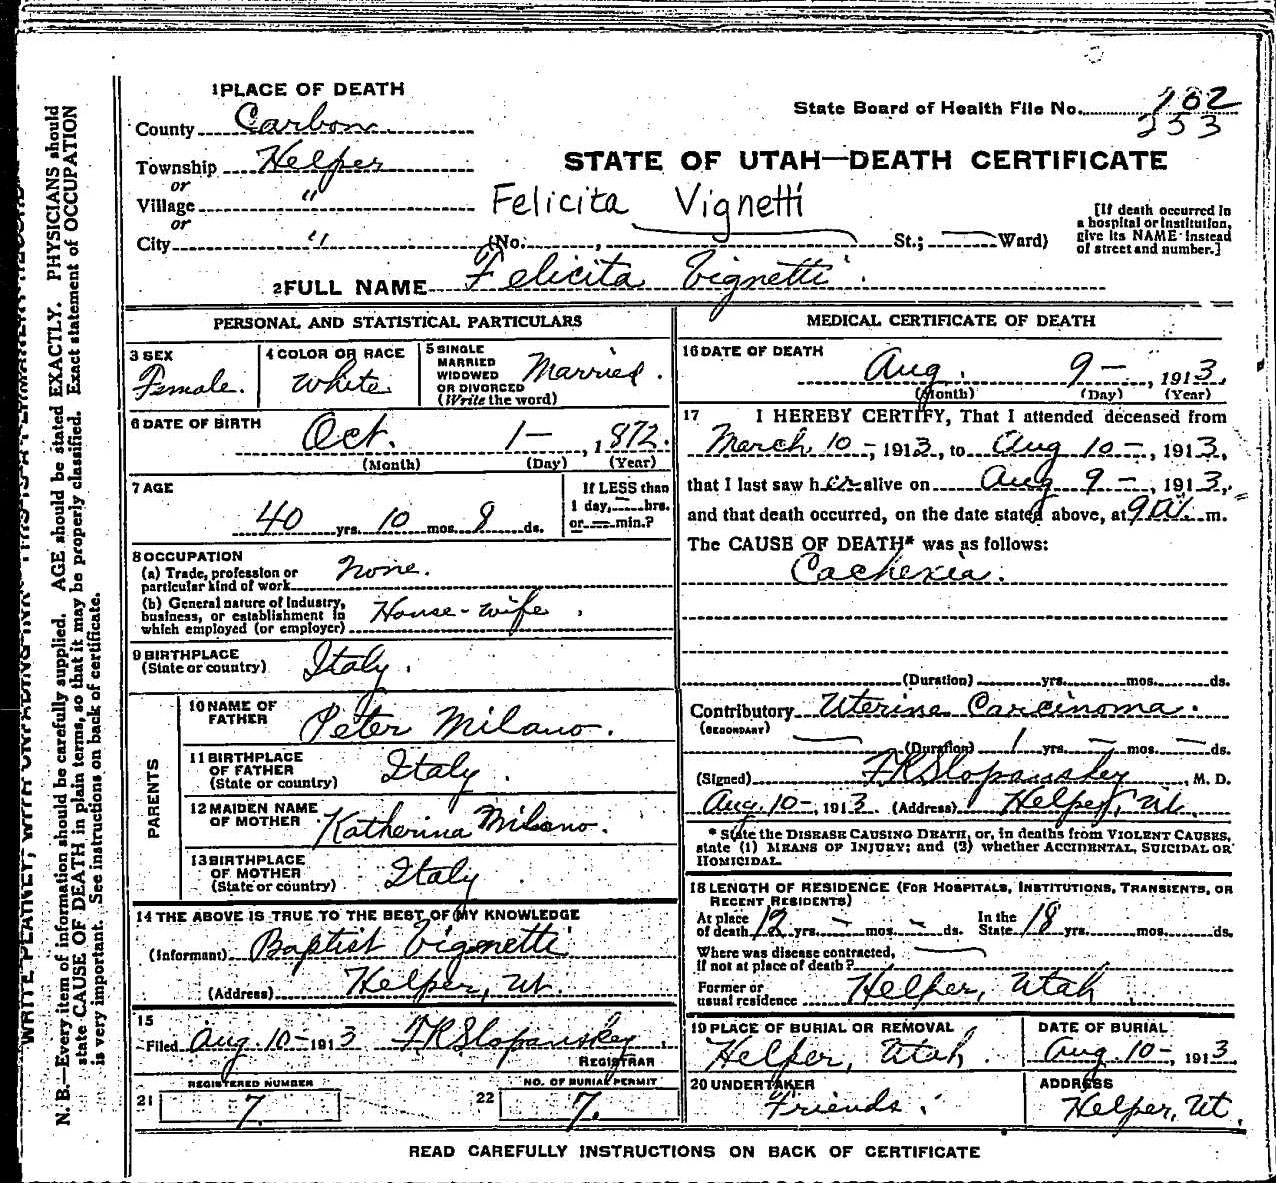 1 PLACE OF DEATH
County Carbon
Township Helper
or
Village "
or
City "
State Board of Health File No. 102
253
STATE OF UTAH—DEATH CERTIFICATE
Felicita Vignetti
(No. , St.; Ward)
[If death occurred in
a hospital or institution,
give its NAME instead
of street and number.]
2 FULL NAME Felicita Vignetti
PERSONAL AND STATISTICAL PARTICULARS
3 SEX
Female.
4 COLOR OR RACE
White
5 SINGLE
MARRIED
WIDOWED
OR DIVORCED
(Write the word)
Married.
6 DATE OF BIRTH
Oct. 1 — , 1872.
(Month) (Day) (Year)
7 AGE
40 yrs. 10 mos. 8 ds.
If LESS than
1 day, — hrs.
or — min.?
8 OCCUPATION
(a) Trade, profession or
particular kind of work None.
(b) General nature of Industry,
business, or establishment in
which employed (or employer) House-wife.
9 BIRTHPLACE
(State or country) Italy.
PARENTS
10 NAME OF
FATHER Peter Milano.
11 BIRTHPLACE
OF FATHER
(State or country) Italy.
12 MAIDEN NAME
OF MOTHER Katherina Milano.
13 BIRTHPLACE
OF MOTHER
(State or country) Italy
14 THE ABOVE IS TRUE TO THE BEST OF MY KNOWLEDGE
(Informant) Baptist Vignetti
(Address) Helper, Ut.
15
Filed Aug. 10 - 1913 F R Slopansky
REGISTRAR
REGISTERED NUMBER
21 7.
NO. OF BURIAL PERMIT
22 7.
MEDICAL CERTIFICATE OF DEATH
16 DATE OF DEATH
Aug. 9 — , 1913.
(Month) (Day) (Year)
17 I HEREBY CERTIFY, That I attended deceased from
March 10 -, 1913, to Aug 10 -, 1913,
that I last saw her alive on Aug 9 -, 1913,
and that death occurred, on the date stated above, at 9 A. m.
The CAUSE OF DEATH* was as follows:
Cachexia.
(Duration) yrs. mos. ds.
Contributory Uterine Carcinoma.
(SECONDARY)
(Duration) 1 yrs. — mos. — ds.
(Signed) F R Slopansky, M. D.
Aug. 10 -, 1913 (Address) Helper, Ut.
* State the DISEASE CAUSING DEATH, or, in deaths from VIOLENT CAUSES,
state (1) MEANS OF INJURY; and (2) whether ACCIDENTAL, SUICIDAL OR
HOMICIDAL.
18 LENGTH OF RESIDENCE (FOR HOSPITALS, INSTITUTIONS, TRANSIENTS, OR
RECENT RESIDENTS)
At place
of death 12 yrs. — mos. — ds.
In the
State 18 yrs. mos. ds.
Where was disease contracted,
If not at place of death? —
Former or
usual residence Helper, Utah
19 PLACE OF BURIAL OR REMOVAL
Helper, Utah.
DATE OF BURIAL
Aug. 10 -, 1913
20 UNDERTAKER
Friends.
ADDRESS
Helper, Ut.
READ CAREFULLY INSTRUCTIONS ON BACK OF CERTIFICATE
N. B.—Every item of information should be carefully supplied. AGE should be stated EXACTLY. PHYSICIANS should
state CAUSE OF DEATH in plain terms, so that it may be properly classified. Exact statement of OCCUPATION
is very important. See instructions on back of certificate.